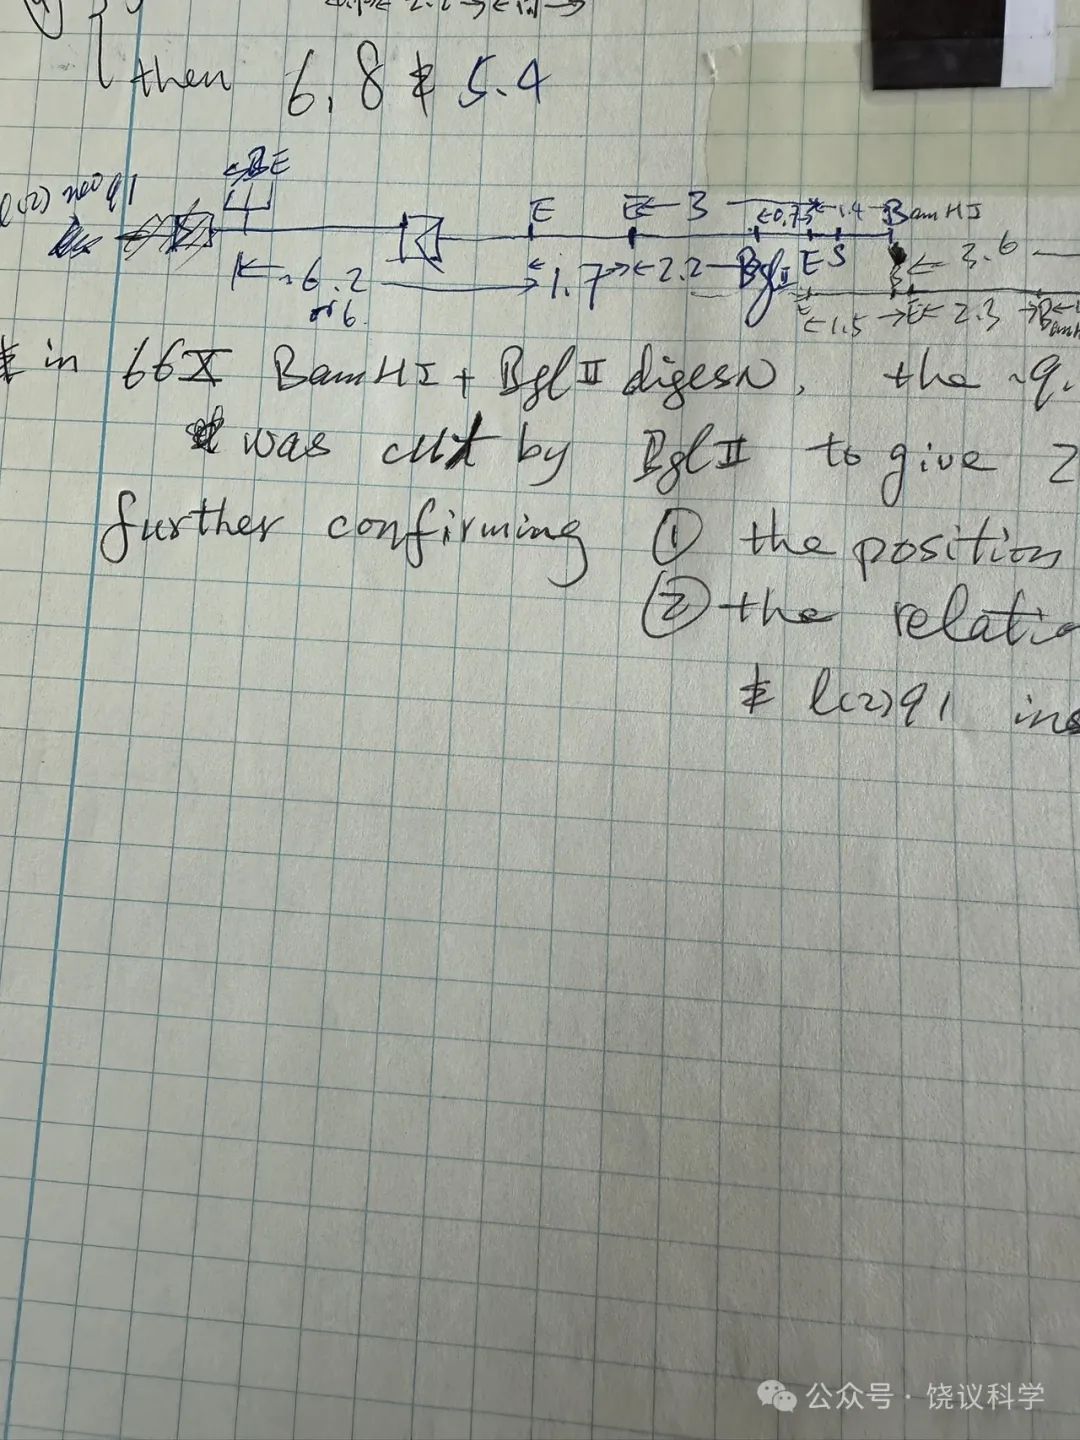 then 6.8 & 5.4
l(2) neo 91
E E ← 3 0.75 1.4 BamHI
← ~6.2 → 1.7 → ← 2.2 BglII E S ← 3.6
or 6.
← 1.5 → E ← 2.3 →
& in 66X BamHI + BglII digesn, the ~9.
was cut by BglII to give 2
further confirming ① the position
② the relatio
& l(2)91 ins
公众号 · 饶议科学